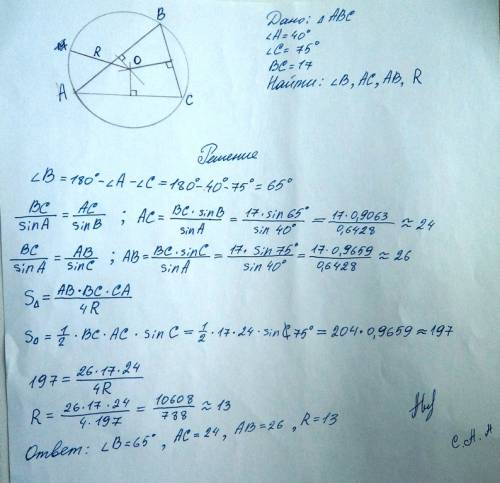 B
R
O
A
C
Дано: △ ABC
∠A = 40°
∠C = 75°
BC = 17
Найти: ∠B, AC, AB, R
Решение
∠B = 180° - ∠A - ∠C = 180° - 40° - 75° = 65°
BC/sinA = AC/sinB ; AC = BC · sinB/sinA = 17 · sin 65°/sin 40° = 17 · 0,9063/0,6428 ≈ 24
BC/sinA = AB/sinC ; AB = BC · sinC/sinA = 17 · sin 75°/sin 40° = 17 · 0,9659/0,6428 ≈ 26
S△ = AB · BC · CA/4R
S△ = 1/2 · BC · AC · sin C = 1/2 · 17 · 24 · sin 75° = 204 · 0,9659 ≈ 197
197 = 26 · 17 · 24/4R
R = 26 · 17 · 24/4 · 197 = 10608/788 ≈ 13
Ответ: ∠B = 65°, AC = 24, AB = 26, R = 13
С.А.А